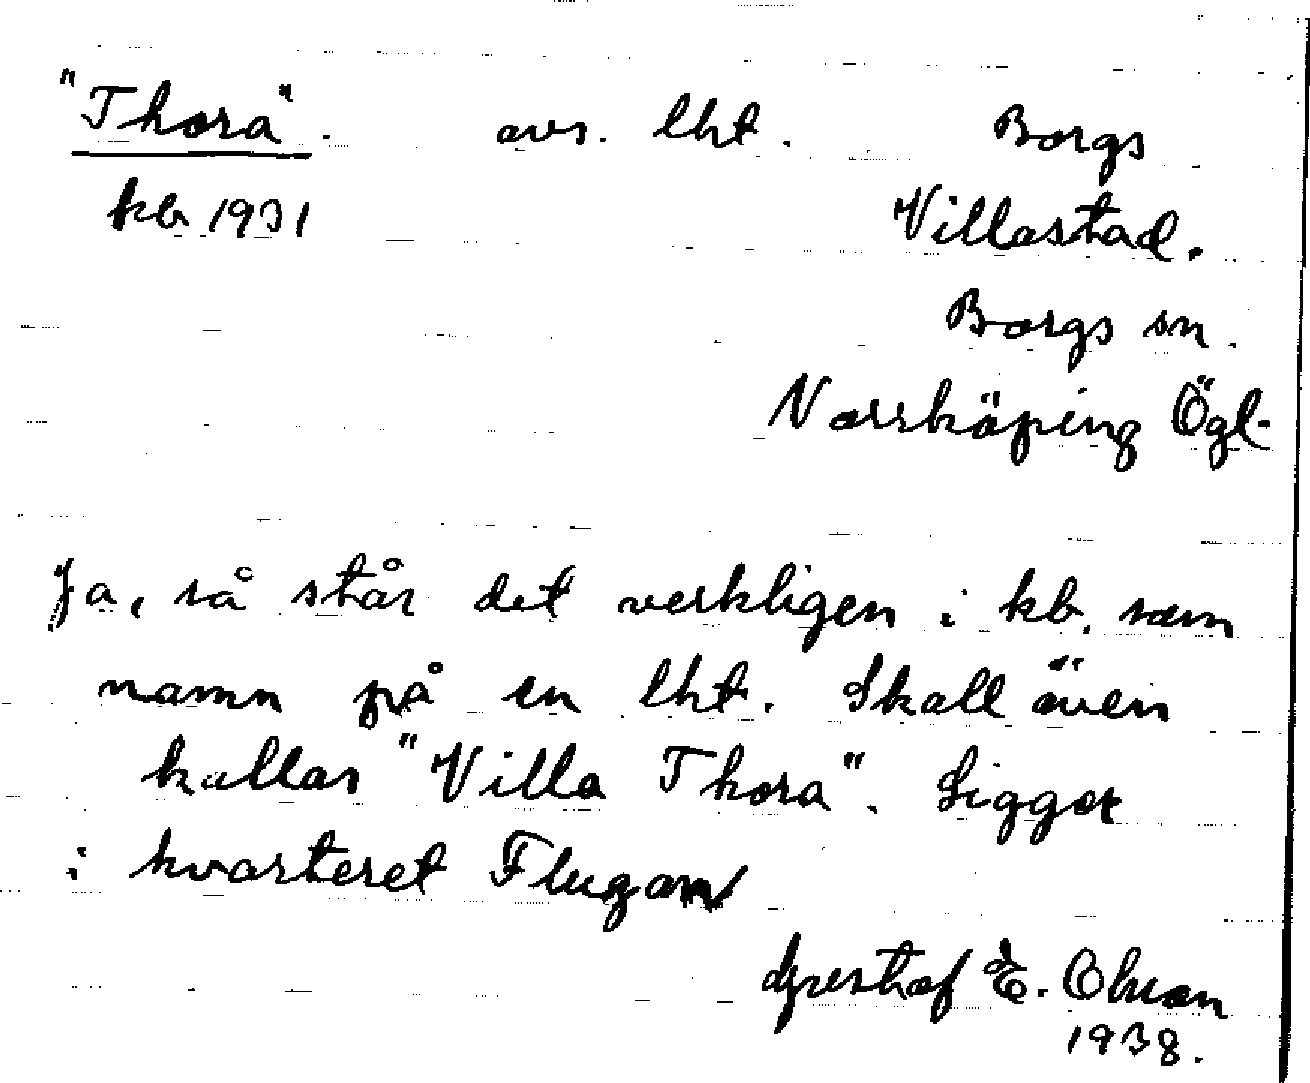 "Thora". avs. lht. Borgs
kb 1931 Villastad.
Borgs sn.
Norrköping Ögl.
Ja, så står det verkligen i kb. som
namn på en lht. Skall även
kallas "Villa Thora". Ligger
i kvarteret Flugan
Gustaf E. Ohson
1938.